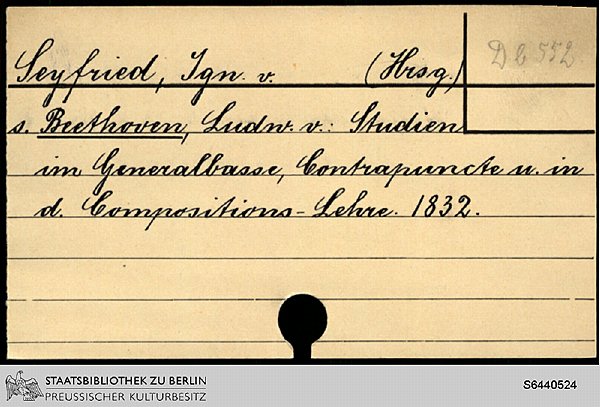 Seyfried, Ign. v. (Hrsg.)
D b 552.
s. Beethoven, Ludw. v.: Studien
im Generalbasse, Contrapuncte u. in
d. Compositions-Lehre. 1832.
STAATSBIBLIOTHEK ZU BERLIN
PREUSSISCHER KULTURBESITZ
S6440524